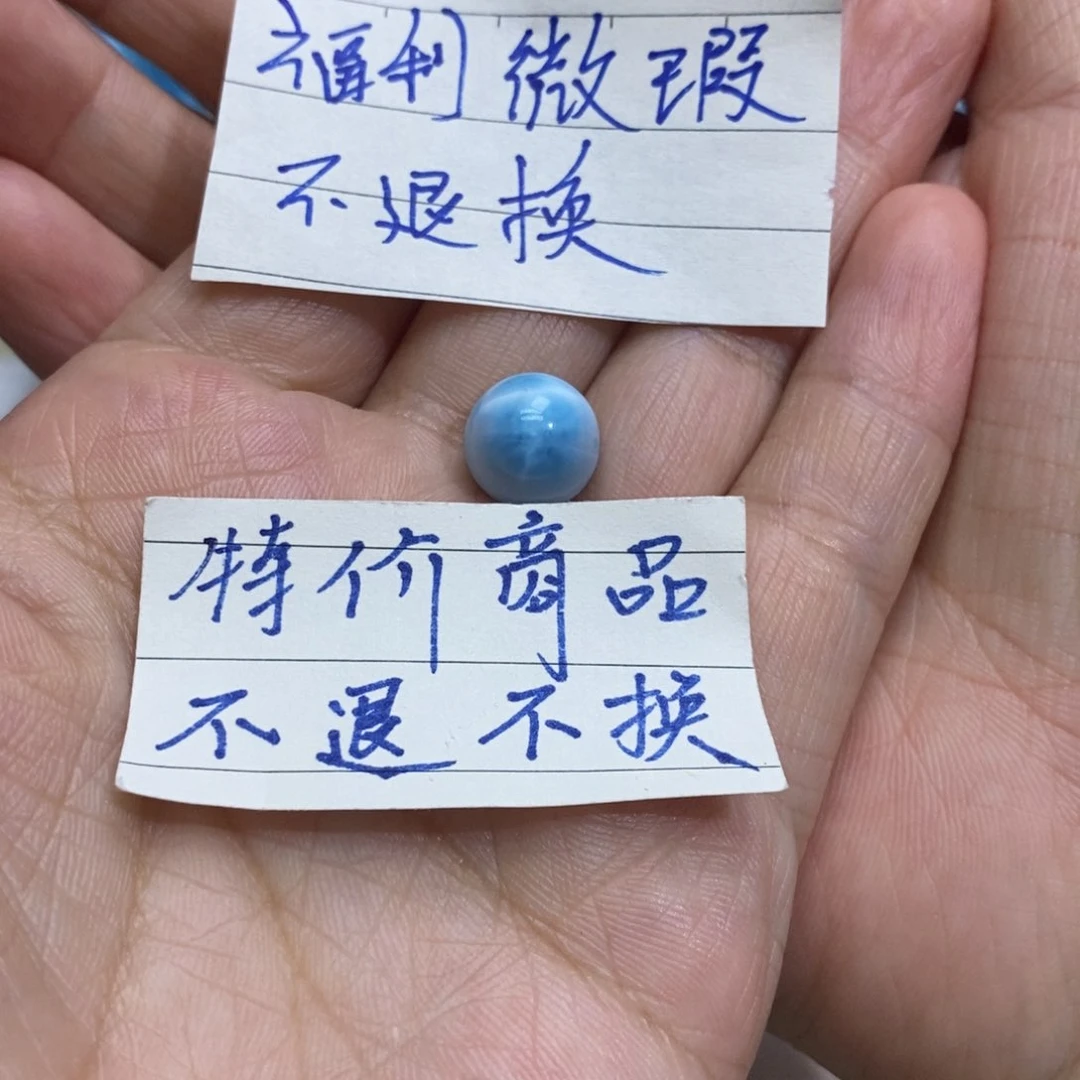 福利微瑕
不退换
特价商品
不退不换